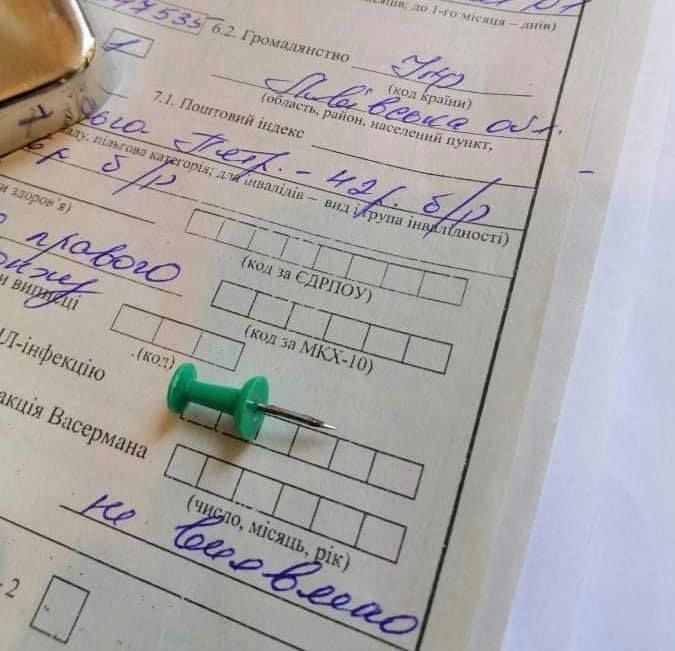 до 1-го місяця – днів)
7535
6.2. Громадянство Укр
(код країни)
1
Львівська обл.
(область, район, населений пункт,
7.1. Поштовий індекс
Петр. – 42р. б/р
пільгова категорія; для інвалідів – вид і група інвалідності)
б/р
и здоров'я)
(код за ЄДРПОУ)
правого
и виписці
(код за МКХ-10)
(код)
Л-інфекцію
акція Васермана
(число, місяць, рік)
не виявлено
2